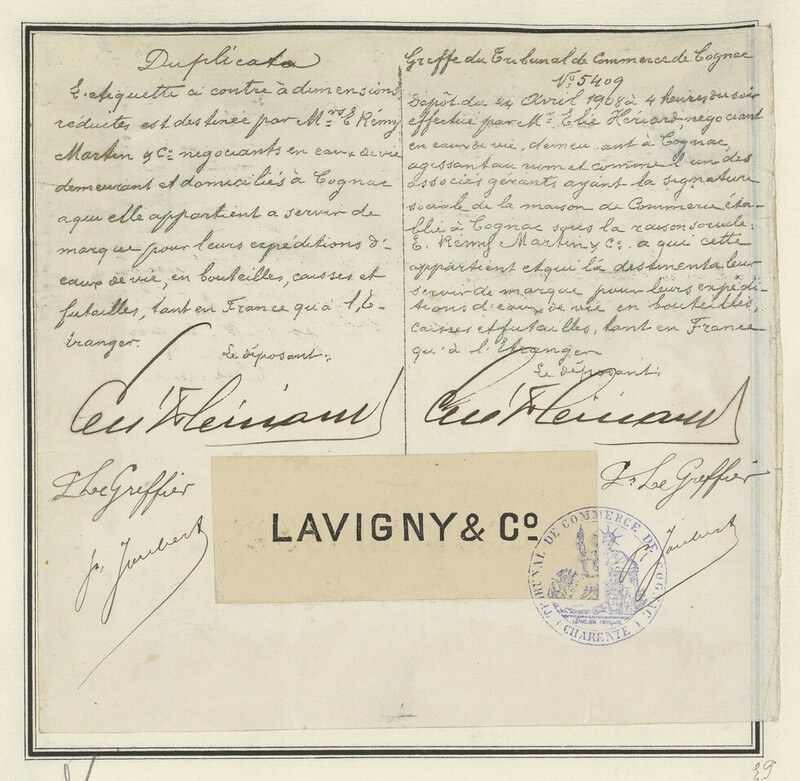 Duplicata
L'etiquette ci contre à dimensions
réduites est destinée par Mrs E Rémy
Martin & Co negociants en eaux de vie
demeurant et domiciliés à Cognac
a qui elle appartient a servir de
marque pour leurs expéditions d'
eaux de vie, en bouteilles, caisses et
futailles, tant en France qu'à l'É-
tranger.
Le déposant:
Le Greffier
Joubert
Greffe du Tribunal de Commerce de Cognac
No 5409
Dépôt du Avril 1908 à 4 heures du soir
effectué par Mr Elie Hériard, negociant
en eaux de vie, demeurant à Cognac,
agissant au nom et comme l'un des
associés gérants ayant la signature
sociale de la maison de Commerce éta-
blie à Cognac sous la raison sociale:
E. Rémy Martin & Co. a qui cette
appartient et qui la destinent a leur
servir de marque pour leurs expédi-
tions d'eaux de vie en bouteilles,
caisses et futailles, tant en France
qu'à l'Etranger
Le déposant:
Le Greffier
Joubert
LAVIGNY & Co
TRIBUNAL DE COMMERCE DE COGNAC
(CHARENTE)